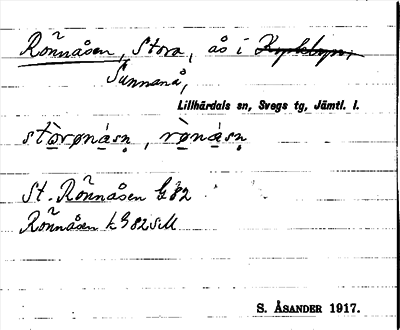 Rönnåsen, Stora, ås i Kyrkbyn,
Sunnanå,
Lillhärdals sn, Svegs tg, Jämtl. l.
stòrønásn, rònásn
St. Rönnåsen G82
Rönnåsen k G82SM
S. ÅSANDER 1917.